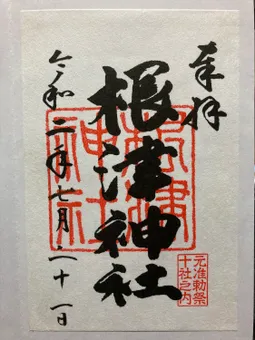 奉拝
根津神社
根津神社
元准勅祭
十社之内
令和二年七月二十一日